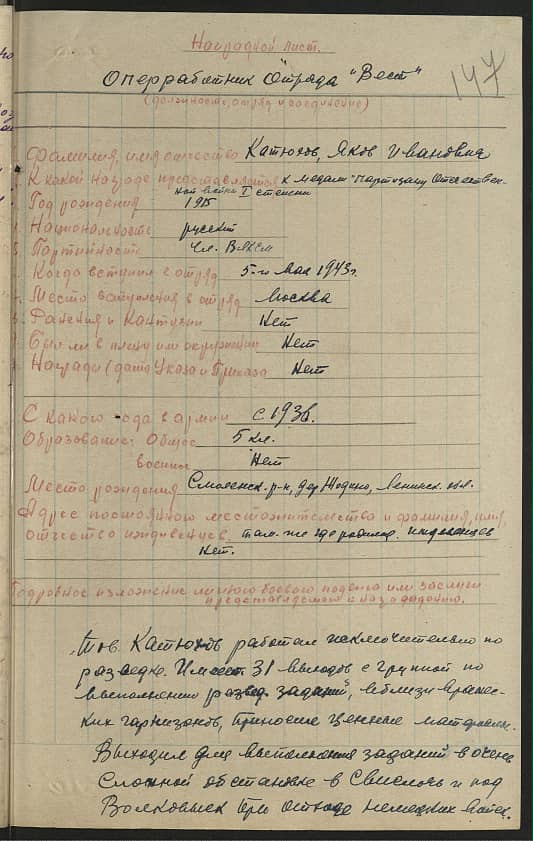 147
Наградной лист.
Оперработник Отряда "Вест"
(должность, отряд и соединение)
Фамилия, имя отчество Катюхов, Яков Иванович
К какой награде представляется к медали "Партизану Отечествен-
ной войны I степени
Год рождения 1915
Национальность русский
Партийность чл. ВЛКСМ
Когда вступил в отряд 5-го мая 1943г.
Место вступления в отряд Москва
Ранения и контузии Нет
Был ли в плену или окружении Нет
Награды (дата Указа и Приказа Нет
С какого года в армии с 193
Образование: Общее 5 кл.
военное Нет
Место рождения Смоленск. р-н, дер. обл.
Адрес постоянного местожительства и фамилия, имя,
отчество иждивенцев там-же где родился. иждивенцев
нет.
Подробное изложение личного боевого подвига или заслуги
представляемого к награждению.
Тов. Катюхов работал исключительно по
разведке. Имеет 31 выходов с группой по
выполнению развед. заданий, вблизи вражес-
ких гарнизонов, приносил ценные материалы.
Выходил для выполнения заданий в очень
сложной обстановке в Свислочь и под
Волковыск при отходе немецких войск.